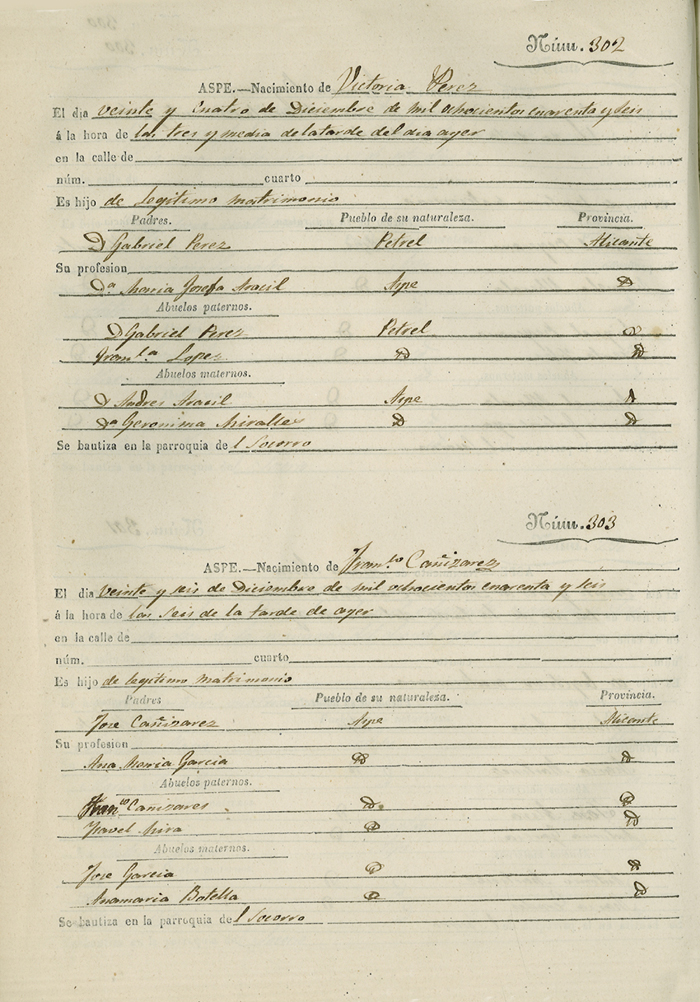 Núm. 302
ASPE.—Nacimiento de Victoria Perez
El dia veinte y cuatro de Diciembre de mil ochocientos cuarenta y seis
á la hora de las tres y media de la tarde del dia ayer
en la calle de
núm. cuarto
Es hijo de legitimo matrimonio
Padres. Pueblo de su naturaleza. Provincia.
D Gabriel Perez Petrel Alicante
Su profesion
Dª Maria Josefa Aracil Aspe D
Abuelos paternos.
D Gabriel Perez Petrel D
Franᶜᵃ Lopez D D
Abuelos maternos.
D Andres Aracil Aspe D
Dª Geronima Miralles D D
Se bautiza en la parroquia de l Socorro
Núm. 303
ASPE.—Nacimiento de Franᶜᵒ Cañizarez
El dia veinte y seis de Diciembre de mil ochocientos cuarenta y seis
á la hora de las seis de la tarde de ayer
en la calle de
núm. cuarto
Es hijo de legitimo matrimonio
Padres Pueblo de su naturaleza. Provincia.
Jose Cañizarez Aspe Alicante
Su profesion
Ana Maria Garcia D D
Abuelos paternos.
Franᶜᵒ Cañizares D D
Isavel Mira D D
Abuelos maternos.
Jose Garcia D D
Anamaria Botella D D
Se bautiza en la parroquia de l Socorro